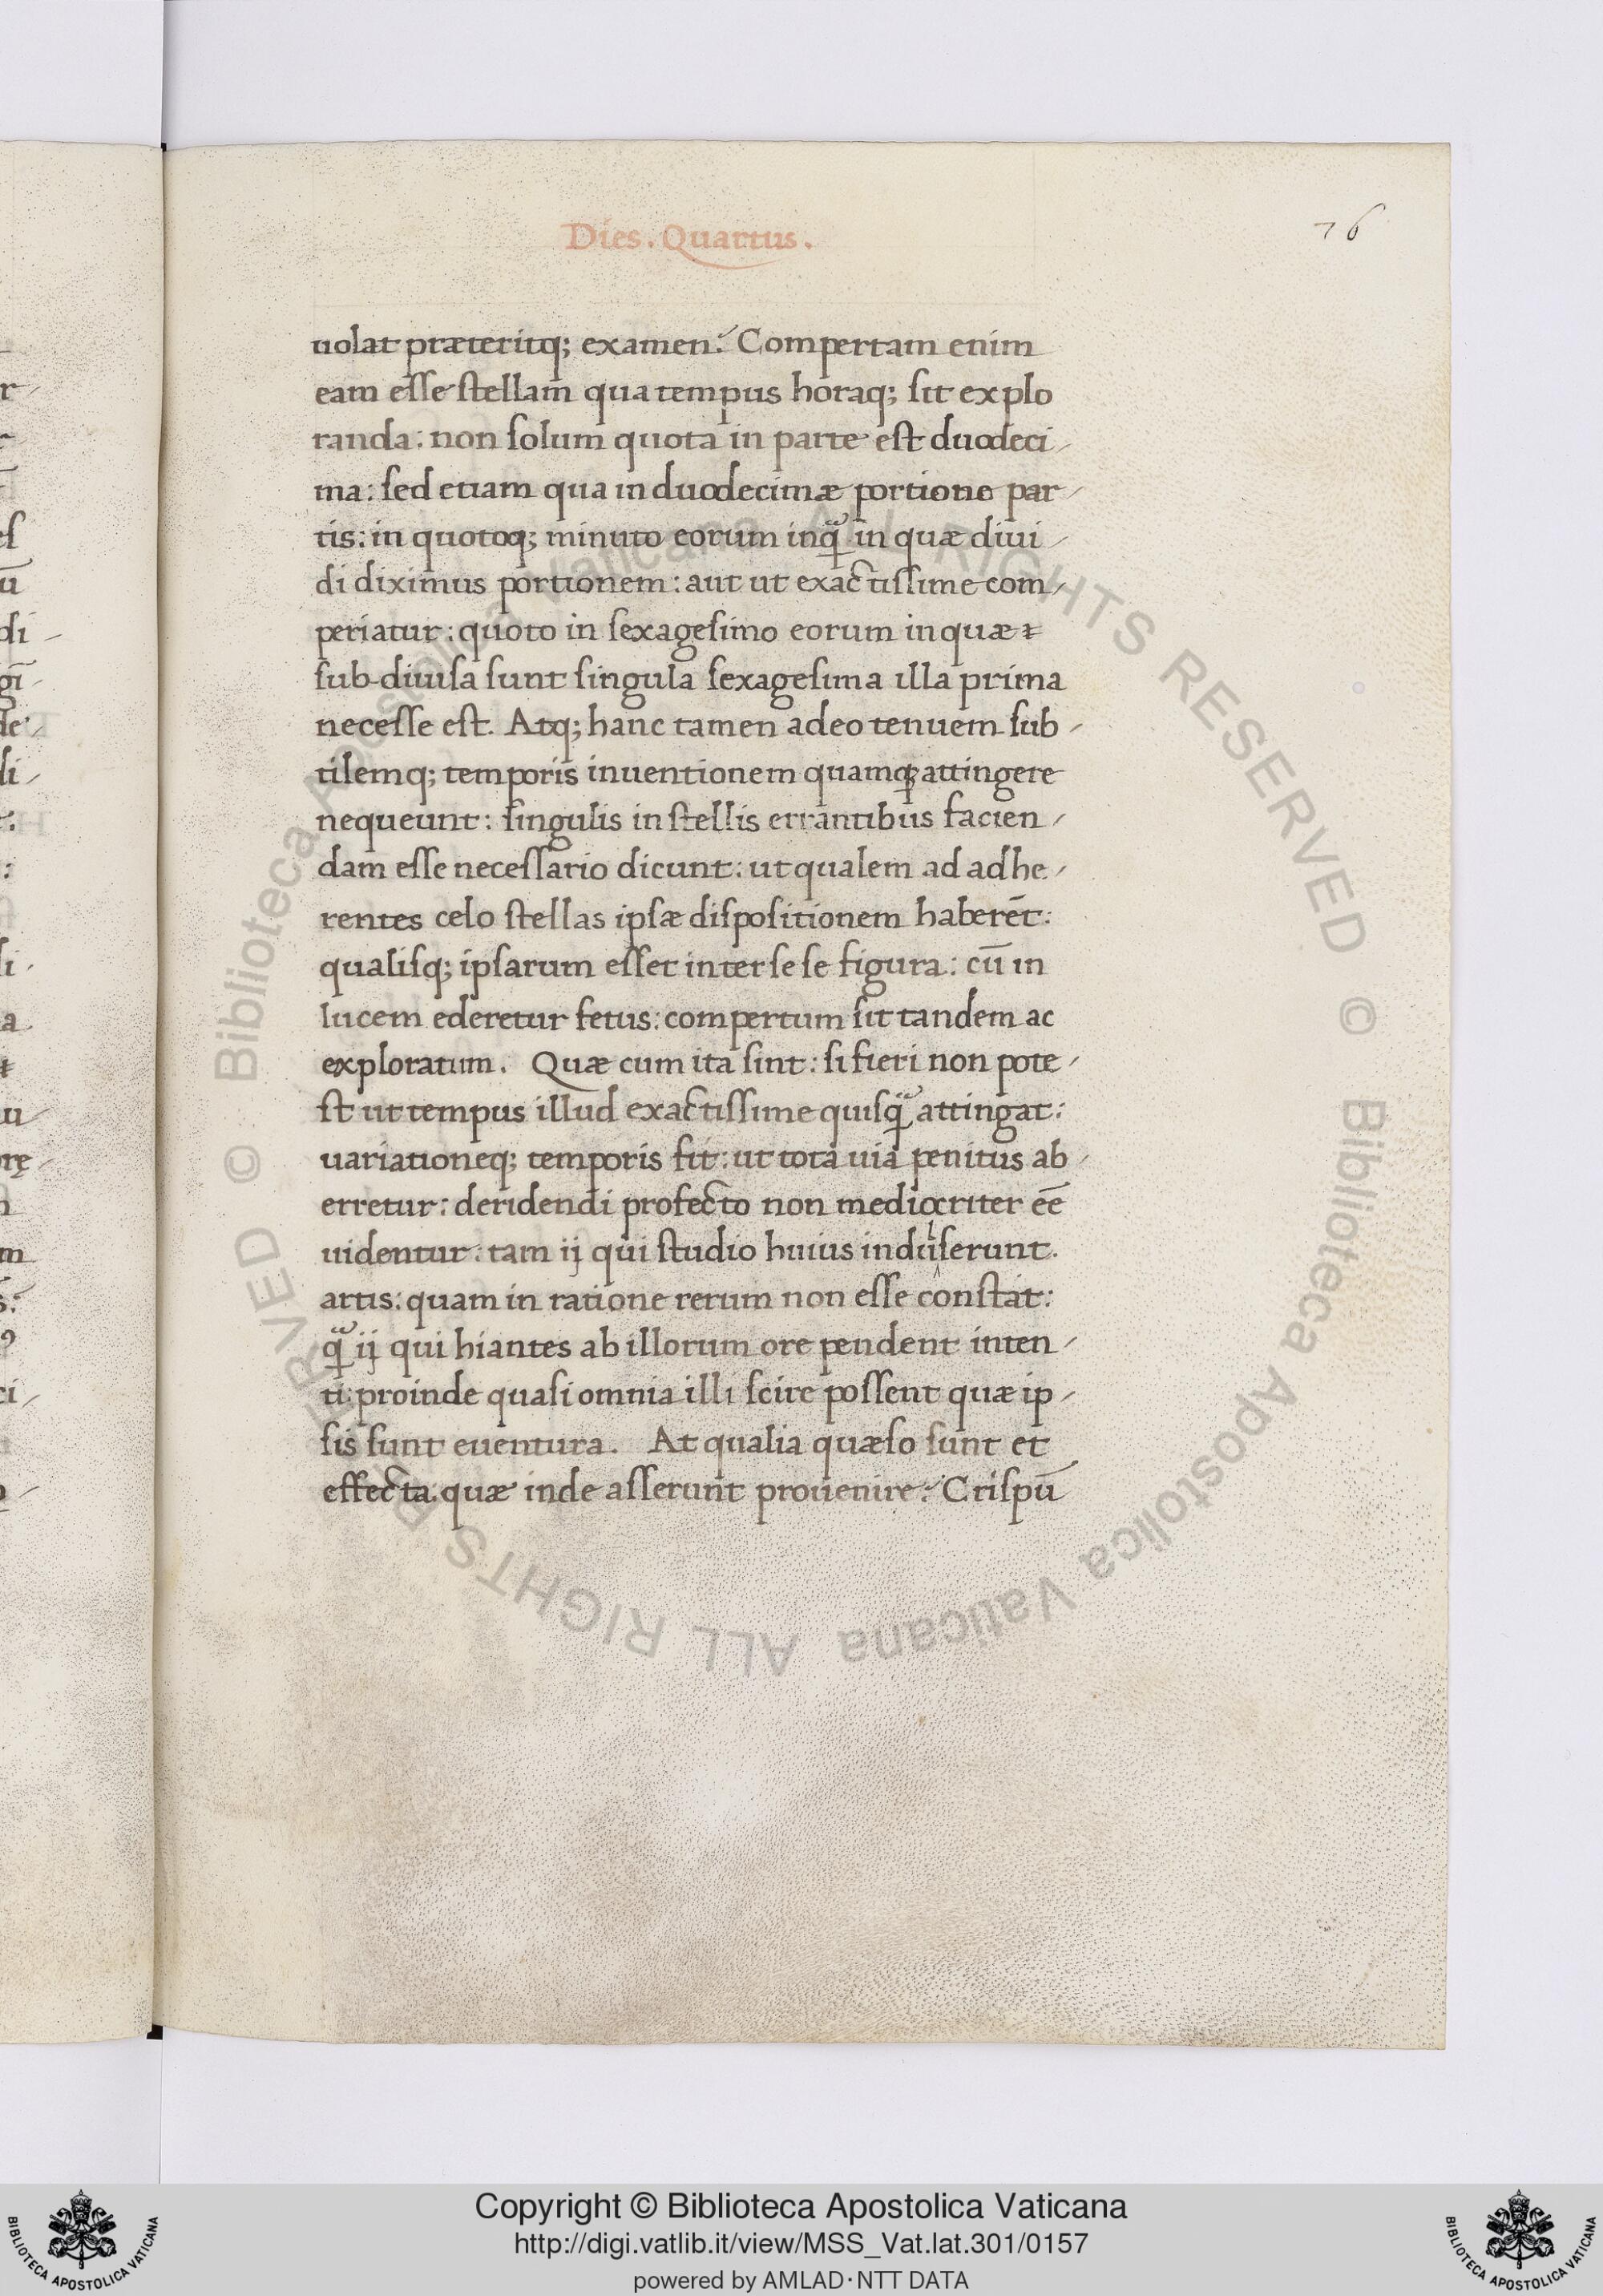 Dies. Quartus.
76
uolat præteritq; examen? Compertam enim
eam esse stellam qua tempus horaq; sit explo
randa: non solum quota in parte est duodeci-
ma: sed etiam qua in duodecimæ portione par-
tis: in quotoq; minuto eorum inqᷓ in quæ diui-
di diximus portionem: aut ut exactissime com-
periatur: quoto in sexagesimo eorum in quæ
sub diuisa sunt singula sexagesima illa prima
necesse est. Atq; hanc tamen adeo tenuem sub-
tilemq; temporis inuentionem quamq attingere
nequeunt: singulis in stellis errantibus facien-
dam esse necessario dicunt: ut qualem ad adhe-
rentes celo stellas ipsæ dispositionem haberēt:
qualisq; ipsarum esset inter se se figura: cū in
lucem ederetur fetus: compertum sit tandem ac
exploratum. Quæ cum ita sint: si fieri non pote-
st ut tempus illud exactissime quisqᷓ attingat:
uariationeq; temporis fit: ut tota uia penitus ab-
erretur: deridendi profecto non mediocriter eē
uidentur: tam ij qui studio huius indulserunt
artis: quam in ratione rerum non esse constat:
qᷓ ij qui hiantes ab illorum ore pendent inten-
ti: proinde quasi omnia illi scire possent quæ ip-
sis sunt euentura. At qualia quæso sunt et
effecta quæ inde asserunt prouenire? Crispū
© Biblioteca Apostolica Vaticana ALL RIGHTS RESERVED © Biblioteca Apostolica Vaticana ALL RIGHTS RESERVED
Copyright © Biblioteca Apostolica Vaticana
http://digi.vatlib.it/view/MSS_Vat.lat.301/0157
powered by AMLAD·NTT DATA
BIBLIOTECA APOSTOLICA VATICANA
BIBLIOTECA APOSTOLICA VATICANA